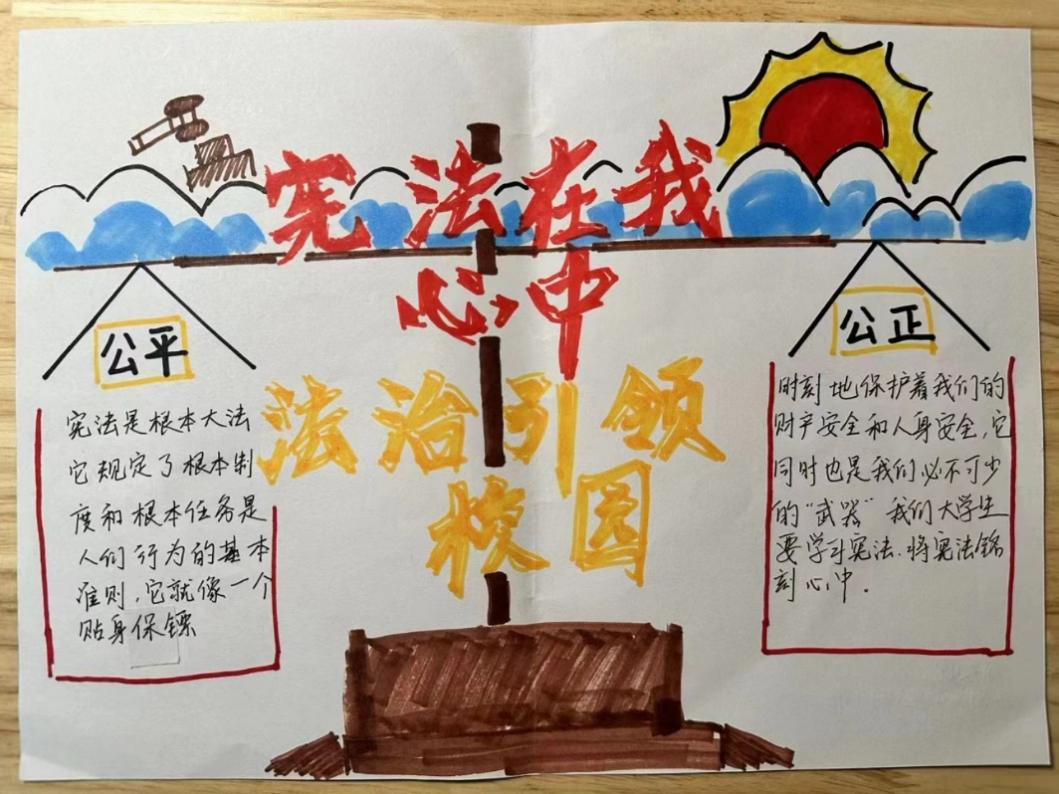 宪法在我
心中
法治引领
校园
公平
宪法是根本大法
它规定了根本制
度和根本任务是
人们行为的基本
准则，它就像一个
贴身保镖
公正
时刻地保护着我们的
财产安全和人身安全，它
同时也是我们必不可少
的“武器”我们大学生
要学习宪法.将宪法铭
刻心中.